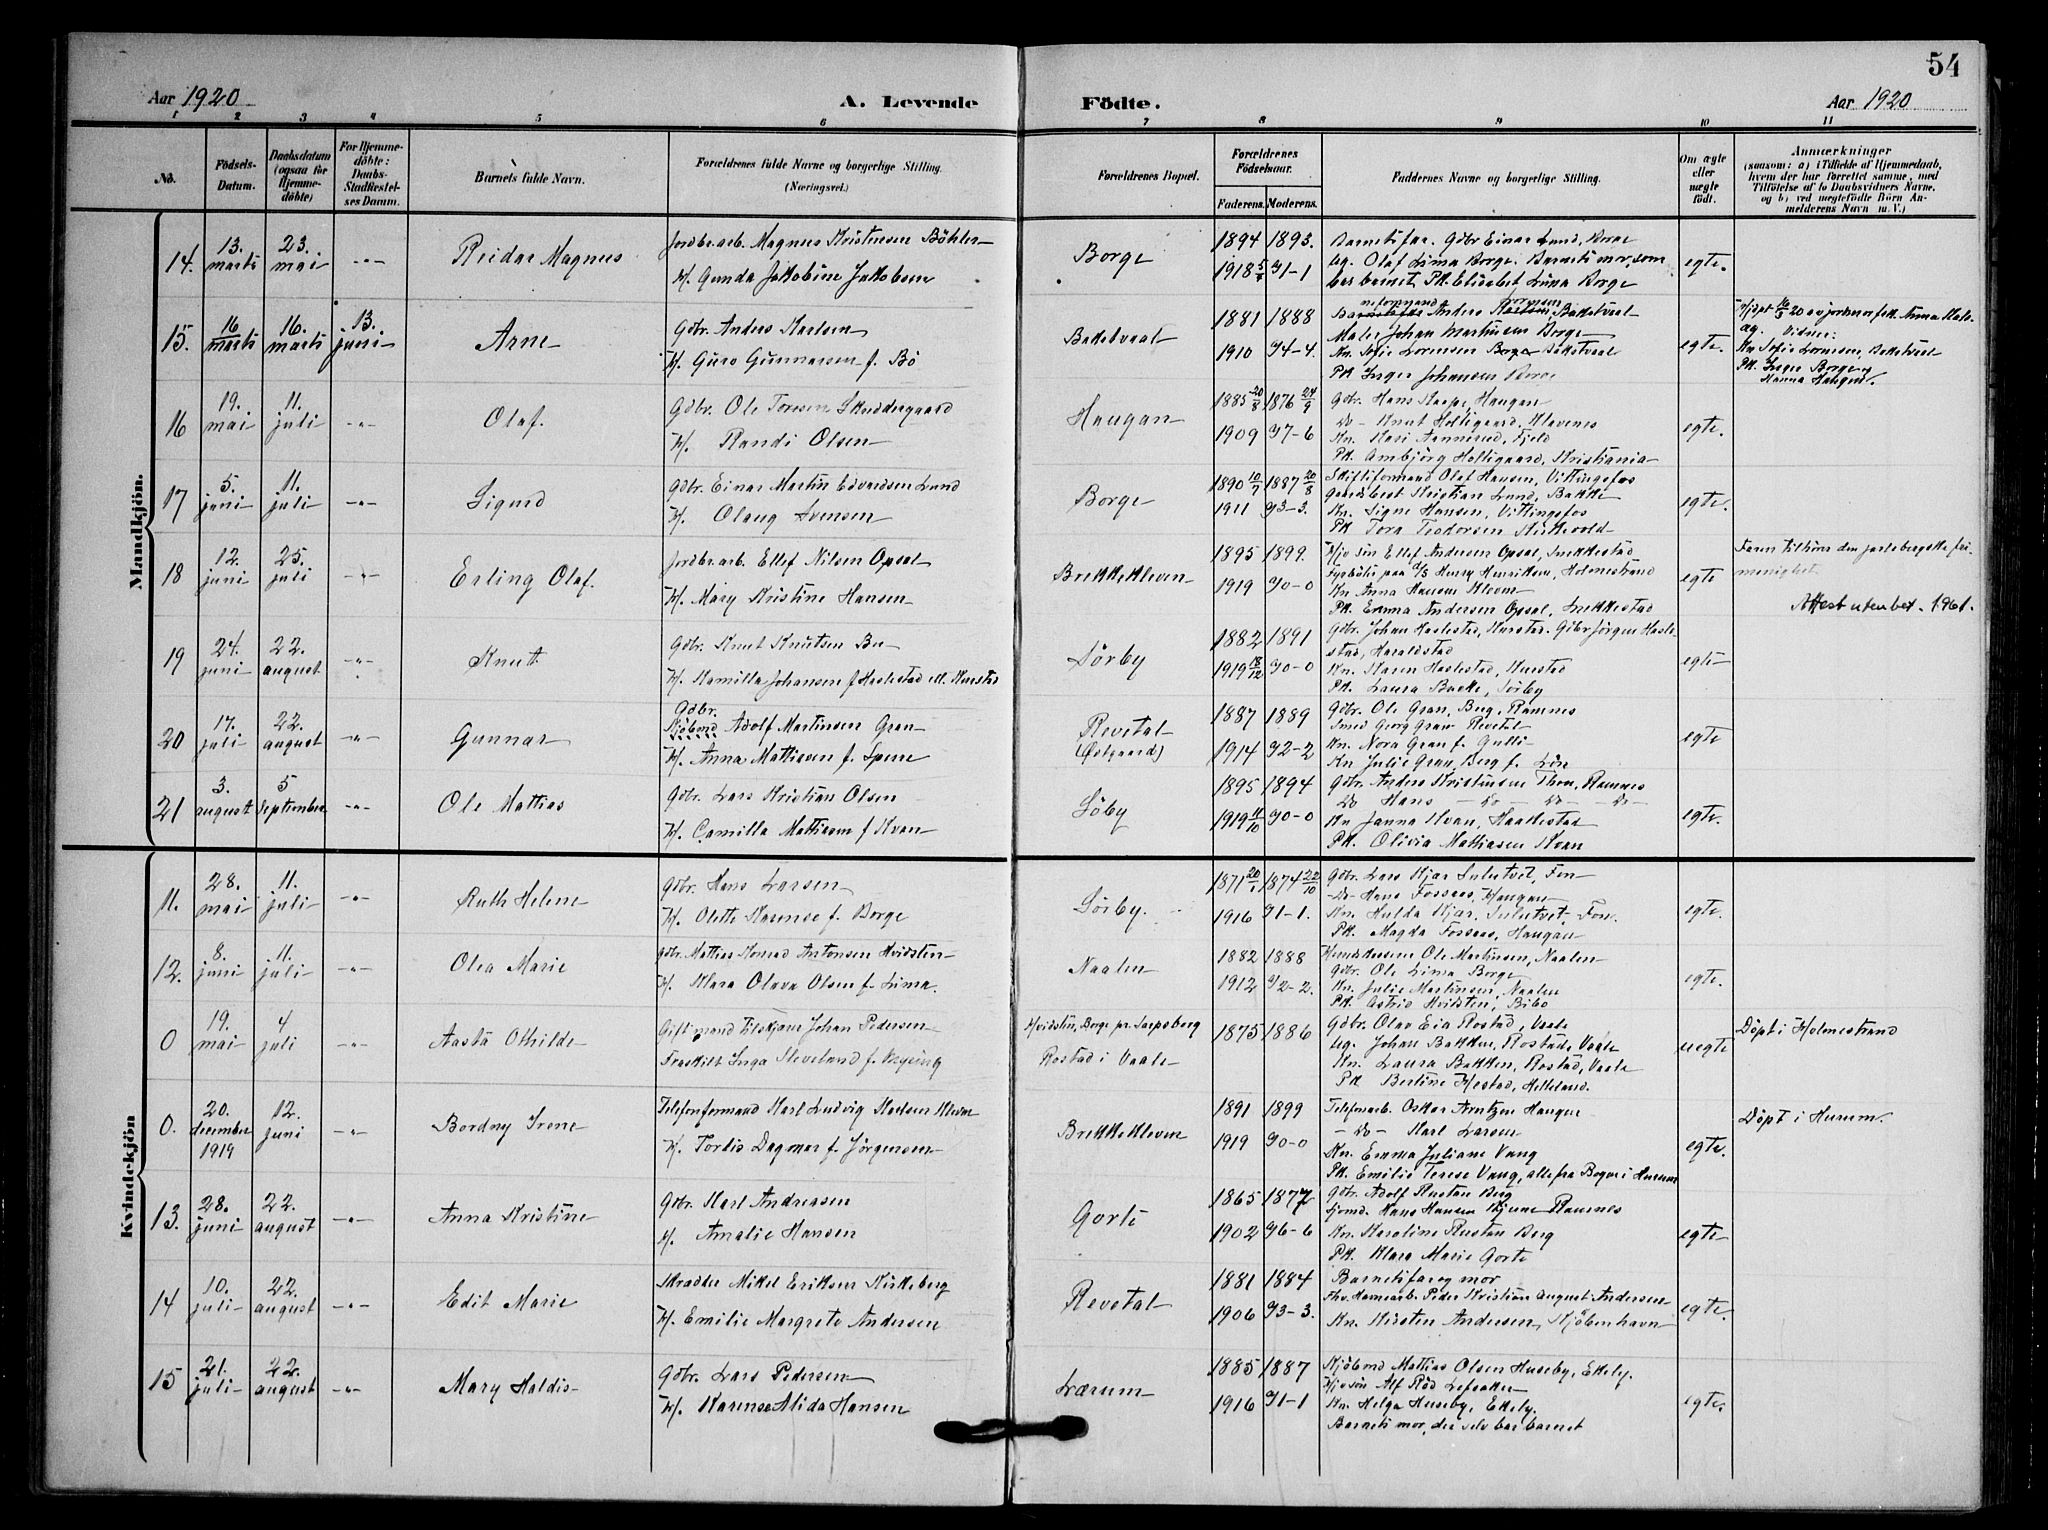 54
Aar 1920
A. Levende
Födte.
Aar 1920
1 2 3 4 5 6 7 8 9 10 11
No.
Födsels-Datum.
Daabsdatum (ogsaa for Hjemme-döbte)
For Hjemme-döbte: Daabs-Stadfæstel-ses Datum.
Barnets fulde Navn.
Forældrenes fulde Navne og borgerlige Stilling. (Næringsvei.)
Forældrenes Bopæl.
Forældrenes Födselsaar.
Faderens. Moderens.
Faddernes Navne og borgerlige Stilling.
Om ægte eller uægte födt.
Anmærkninger
(saasom: a) i Tilfælde af Hjemmedaab,
hvem der har forrettet samme, med
Tilföielse af to Daabsvidners Navne,
og b) ved uægtefödte Börn An-
melderens Navn m. V.)
Mandkjön.
14. 13. marts 23. mai -"- Reidar Magnus
Jordbr.arb. Magnus Kristensen Böhler
H. Gunda Jakobine Jakobsen
Borge
1894 1893.
1918 5/1 J1-1
Barnets far. Gdbr Einar Lund, Borge
Ug. Olaf Lima Borge. Barnets mor, som
bar barnet. Pk. Elisabet Lima Borge
egte.
15. 16 marts 16. marts 13. juni Arne
Gdbr. Anders Karlsen
H. Guro Gunnarsen f. Bö
Bakstvaal
1881 1888
1910 J4-4.
Maler Johan Martinsen Borge
Kn. Sofie Lorensen Borge Bakstvaal
Pk. Inger Johansen Borge
egte.
Vidner:
Kn Sofie Lorensen, Bakstvaal
Pk. Inger Borge
16 19. mai 11. juli -"- Olaf.
Gdbr. Ole Toresen Skuddergaard
H. Randi Olsen
Haugan
1885 20/8 1876 24/9
1909 J7-6
Gdbr. Hans Kaape, Haugan
Do - Knut Holtigaard, Klavenes
Kn. Kari Aannerud, Fjeld
Pk. Ambjörg Holtigaard, Kristiania
egte.
17 5. juni 11. juli -"- Sigurd
Gdbr. Einar Martin Edvardsen Lund
H. Olaug Svensen
Borge
1890 10/7 1887 20/8
1911 J3-3.
Skiftsformand Olaf Hansen, Vittingsfos
Gaardbest Kristian Lund, Bakke
Kn. Signe Hansen, Vittingsfos
Pk Tora Teodorsen
egte.
18 12. juni 25. juli -"- Erling Olaf.
Jordbr.arb. Ellef Nilsen Opsal
H. Mary Kristine Hansen
Brekkekleven
1895 1899.
1919 J0-0
Hjv sön Ellef Andersen Opsal, Snekkestad
Fyrböter paa a/s Henry Henriksen, Holmestrand
Kn Anna Hansen Kleven
Pk. Emma Andersen Opsal, Snekkestad
egte
Faren tilhörer den jarlsbergske fri-
menighet
Attest utenbet. 1961.
19 24. juni 22. august -"- Knut
Gdbr. Knut Knutsen Bu
H. Kamilla Johansen f Haslestad ell. Kurstad
Sörby
1882 1891
1919 18/12 J0-0
Gdbr. Johan Haslestad, Kurstad. Gdbr Jörgen Hasle-
stad, Haraldstad
Kn. Karen Haslestad, Kurstad
Pk. Laura Bakke, Sörby
egte
20 17. juli 22. august -"- Gunnar
Gdbr.
Kjöbmd Adolf Martinsen Gran
H. Anna Mathisen f. Speru
Revetal
(Østgaard)
1887 1889
1914 J2-2
Gdbr. Ole Gran, Berg, Ramnes
Smed Georg Gran Revetal
Kn. Nora Gran f. Gulli
Kn Julie Gran, Berg f. Lön
egte
21 3. august 5 september -"- Ole Mattias
Gdbr. Lars Kristian Olsen
H. Camilla Mattisen f Kvan
Söby
1895 1894
1919 11/10 J0-0
Gdbr. Anders Kristensen Thon, Ramnes
Do Hans - do - do - do -
Kn Janna Kvan, Haakestad
Pk. Olivia Mathiasen Kvan
egte.
Kvindekjön
11. 28. mai 11. juli -"- Ruth Helene
Gdbr. Hans Larsen
H. Olette Karense f. Borge
Sörby.
1871 1874 22/10
1916 J1-1.
Gdbr. Lars Kjar Sulutvet, Fon
-do- Hans Fossaas, Haugan
Kn. Hulda Kjar, Sulutvet, Fon.
Pk. Magda Fossaas, Haugan
egte.
12. 8. juni 11. juli -"- Olea Marie
Gdbr. Mattias Konrad Antonsen Hvidsten
H. Klara Olava Olsen f. Lima.
Naalen
1882 1888
1912 J2-2.
Ole Martinsen, Naalen
Gdbr. Ole Lima Borge
Kn. Julie Martinsen, Naalen
Pk. Astrid Hvidsten, Bibo
egte.
0 19. mai 4 juli -"- Aasta Othilde
Giftmand Johan Pedersen
Fraskilt Inga Sleveland f. Nysing
Hvidstin, Borge pr. Sarpsborg
Rostad i Vaale
1875 1886
Gdbr. Olav Eia Rostad, Vaale
Ug. Johan Bakken, Rostad, Vaale
Kn. Laura Bakken, Rostad, Vaale
Pk Bertine Hestad, Helleland.
uegte
Döpt i Holmestrand
0. 20. december 1919 12. juni -"- Bordny Irene
Telefonformand Karl Ludvig Karlsen Kleven
H. Tordis Dagmar f. Jörgensen
Brekkekleven
1891 1899
1919 J0-0
Telefonarb. Oskar Arntzen Haugen
- do - Karl Larsen
Kn. Emma Juliane Vang
Pk. Emilie Terese Vang, alle fra Bogen i Hurum
egte.
Döpt i Hurum.
13. 28. juni 22. august -"- Anna Kristine
Gdbr. Karl Andreasen
H. Amalie Hansen
Gorte
1865 1877
1902 J6-6
Gdbr. Adolf Rustan Berg
Hans Hansen Kjenne Ramnes
Kn. Karoline Rustan Berg
Pk. Klara Marie Gorte
egte
14 10. juli 22. august -"- Edit Marie
Skrædder Mikel Eriksen Kirkeberg
H. Emilie Margrete Andersen
Revetal
1881 1884
1906 J3-3.
Barnets far og mor
Peder Kristian August Andersen
Kn. Kirsten Andersen, Kjöbenhavn
egte.
15 21. juli 22. august -"- Mary Haldis
Gdbr. Lars Pedersen
H. Karense Alida Hansen
Lærum
1885 1887
1916 J1-1
Kjöbmd Mattias Olsen Huseby, Ekely.
Hjv sön Alf Röd Lefsaker
Kn. Helga Huseby, Ekely.
Barnets mor, der selv bar barnet
egte.